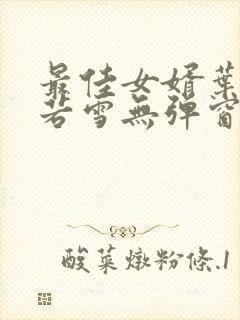 最佳女婿葉
若雪無彈窗
酸菜燉粉條.1